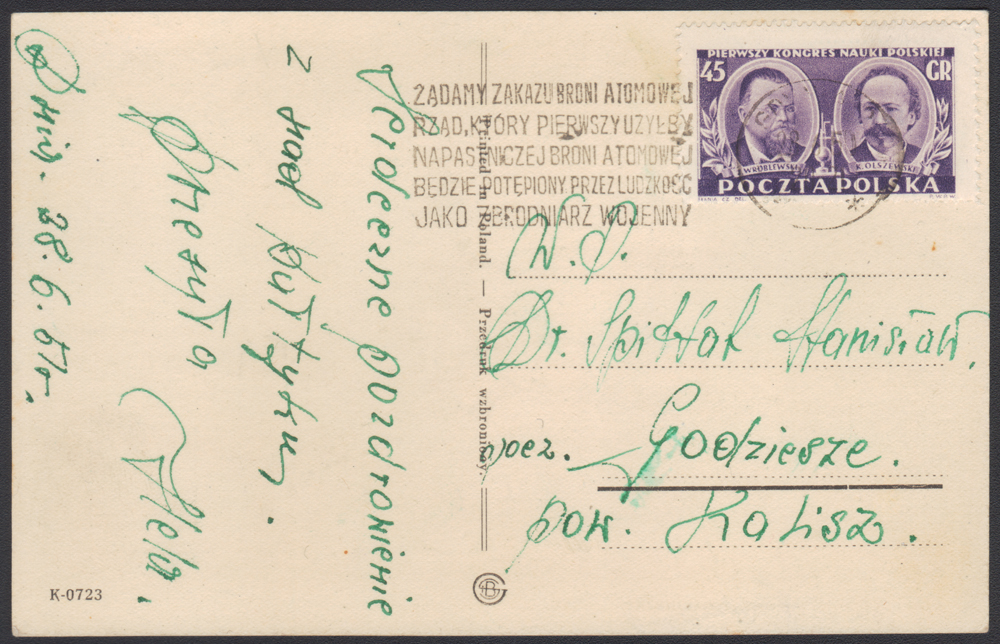 PIERWSZY KONGRES NAUKI POLSKIEJ
45 GR
WRÓBLEWSKI K. OLSZEWSKI
POCZTA POLSKA
ŻĄDAMY ZAKAZU BRONI ATOMOWEJ
RZĄD, KTÓRY PIERWSZY UŻYŁBY
NAPASTNICZEJ BRONI ATOMOWEJ
BĘDZIE POTĘPIONY PRZEZ LUDZKOŚĆ
JAKO ZBRODNIARZ WOJENNY
Serdeczne pozdrowienie
z nad Bałtyku.
przesyła
Hela.
Dnia 28.6.51r.
Printed in Poland. — Przedruk wzbroniony.
W. P.
Dr. Spittal Stanisław.
pocz. Godziesze.
pow. Kalisz.
K-0723